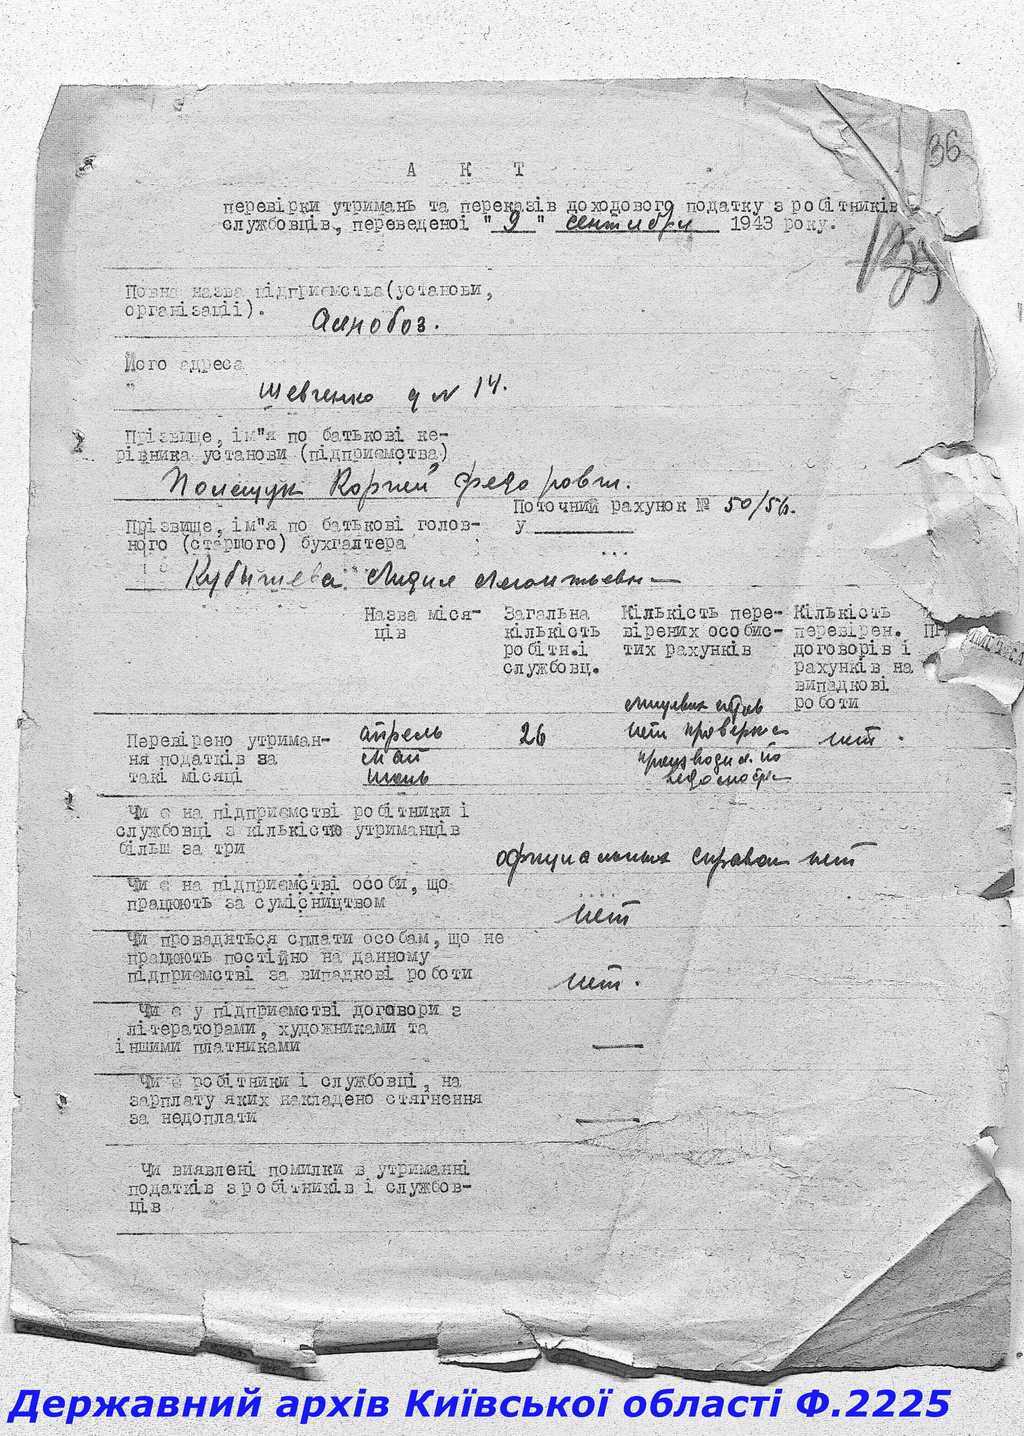 36
А К Т
перевірки утримань та переказів доходового податку з робітників
службовців, переведеної "9" сентября 1943 року.
Повна назва підприємства(установи,
організації).
Аснобоз.
Його адреса
"
Шевченко д № 14.
Прізвище, ім"я по батькові ке-
рівника установи (підприємства)
Полещук Корней Федорович.
Поточний рахунок № 50/56.
у
Прізвище, ім"я по батькові голов-
ного (старшого) бухгалтера
Кубышева Лидия Леонтьевна
Назва міся-
ців
Загальна
кількість
робітн.і
службовц.
Кількість пере-
вірених особис-
тих рахунків
Кількість
перевірен.
договорів і
рахунків на
випадкові
роботи
Перевірено утриман-
ня податків за
такі місяці
апрель
май
июнь
26
лицевых счетов
нет проверка
производил. по
ведомости
нет.
Чи є на підприємстві робітники і
службовці з кількістю утриманців
більш за три
официальных справок нет
Чи є на підприємстві особи, що
працюють за сумісництвом
нет
Чи провадяться сплати особам, що не
працюють постійно на данному
підприємстві за випадкові роботи
нет.
Чи є у підприємстві договори з
літераторами, художниками та
іншими платниками
—
Чи є робітники і службовці, на
зарплату яких накладено стягнення
за недоплати
—
Чи виявлені помилки в утриманні
податків з робітників і службов-
ців
Державний архів Київської області Ф.2225